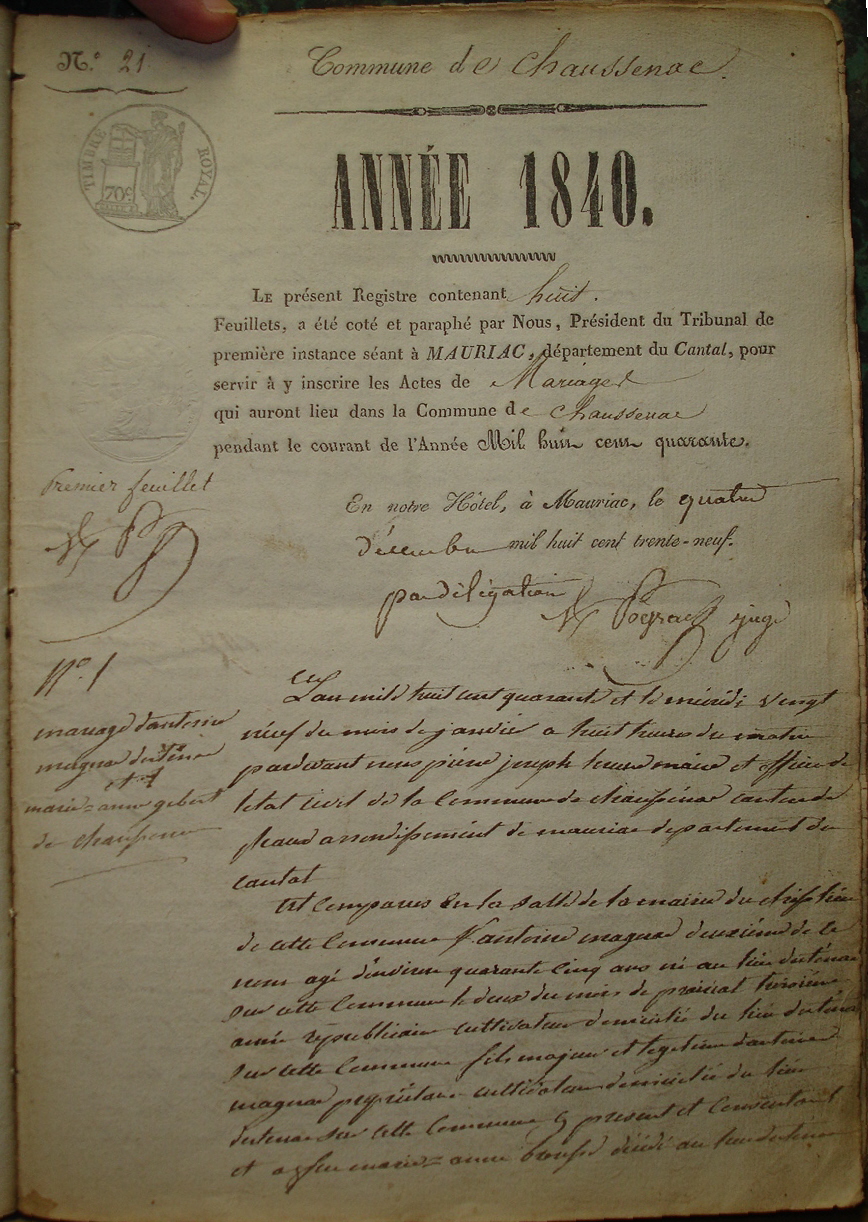 N.° 21.
Commune de Chaussenac.
TIMBRE ROYAL.
70c
ANNÉE 1840.
LE présent Registre contenant huit.
Feuillets, a été coté et paraphé par Nous, Président du Tribunal de
première instance séant à MAURIAC, département du Cantal, pour
servir à y inscrire les Actes de Mariages
qui auront lieu dans la Commune de Chaussenac
pendant le courant de l'Année Mil huit cent quarante.
Premier feuillet
En notre Hôtel, à Mauriac, le quatre
décembre mil huit cent trente-neuf.
par délégation
juge
N° 1
mariage d'antoine
magnac
et
marie = anne gibert
de chaussenac
L'an mil huit cent quarante et le mécredi vingt
neuf du mois de janvier a huit heures du matin
pardevant nous pierre joseph maire et officier de
letat civil de la Commune de chaussenac canton de
pleaux arrondissement de mauriac departement du
cantal
Est Comparus En la salle de la mairie du chef lieu
de cette Commune antoine magnac deuxième de ce
nom agé d'environ quarante cinq ans né au lieu
sur cette Commune le deux du mois de prairial troisième
année républicaine cultivateur domicilié du lieu
sur cette Commune fils majeur et legitime d'antoine
magnac propriétaire cultivateur domicilié du lieu
sur cette Commune y present et Consentant
et a feu marie = anne décédé au lieu